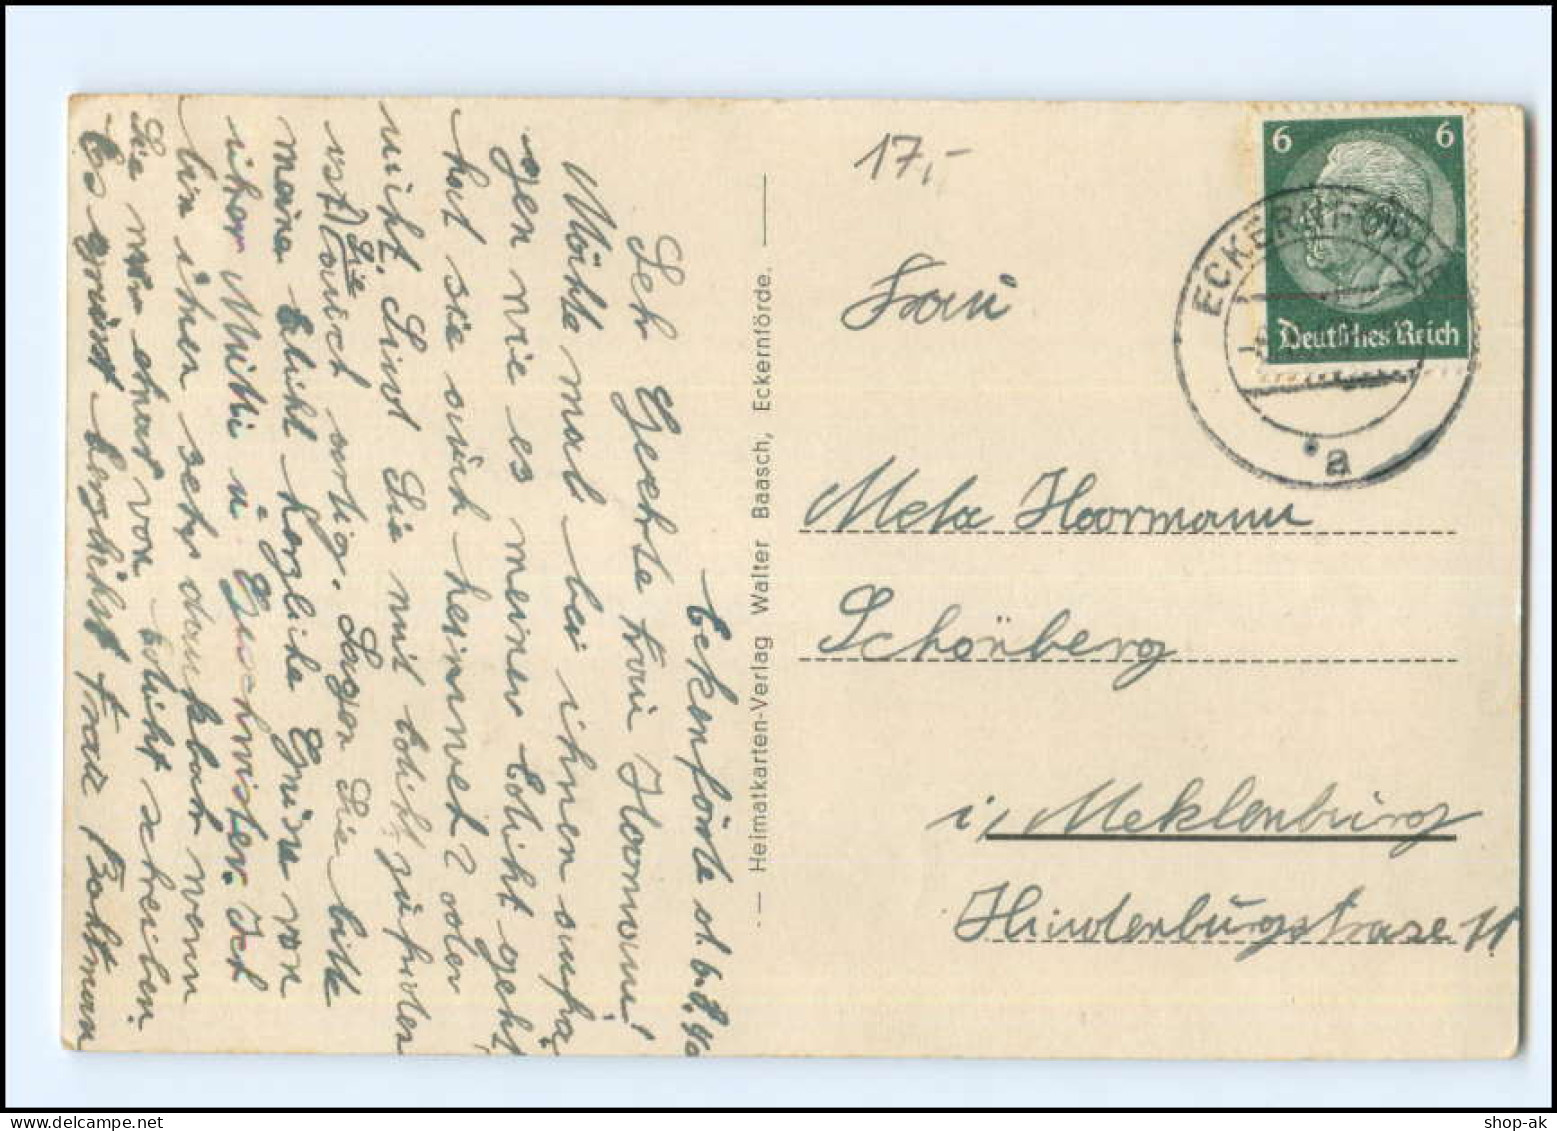 17,-
6 6
Deutsches Reich
ECKERNFÖRDE
a
Frau
Meta Hoormann
Schönberg
i, Meklenburg
Hindenburgstrase 11
— Heimatkarten-Verlag Walter Baasch, Eckernförde. —
Eckenförde d. 6.8.40
Seh Geerhte Frau Hoormann!
Möchte mal bei ihnen anfra
gen wie es meiner Edicht geht,
hat sie auch heimweh? oder
nicht. Sind Sie mit Edicht zufrieden
ist Sie auch artig. Sagen Sie bitte
meine Edicht herzliche Grüse von
ihrer Mutti u Geschwister. Ich
bin ihnen sehr dankbar wenn
Sie mir etwas von Edicht schreiben.
Es grüst herzlichst Frau Bahtmann
shop-ak